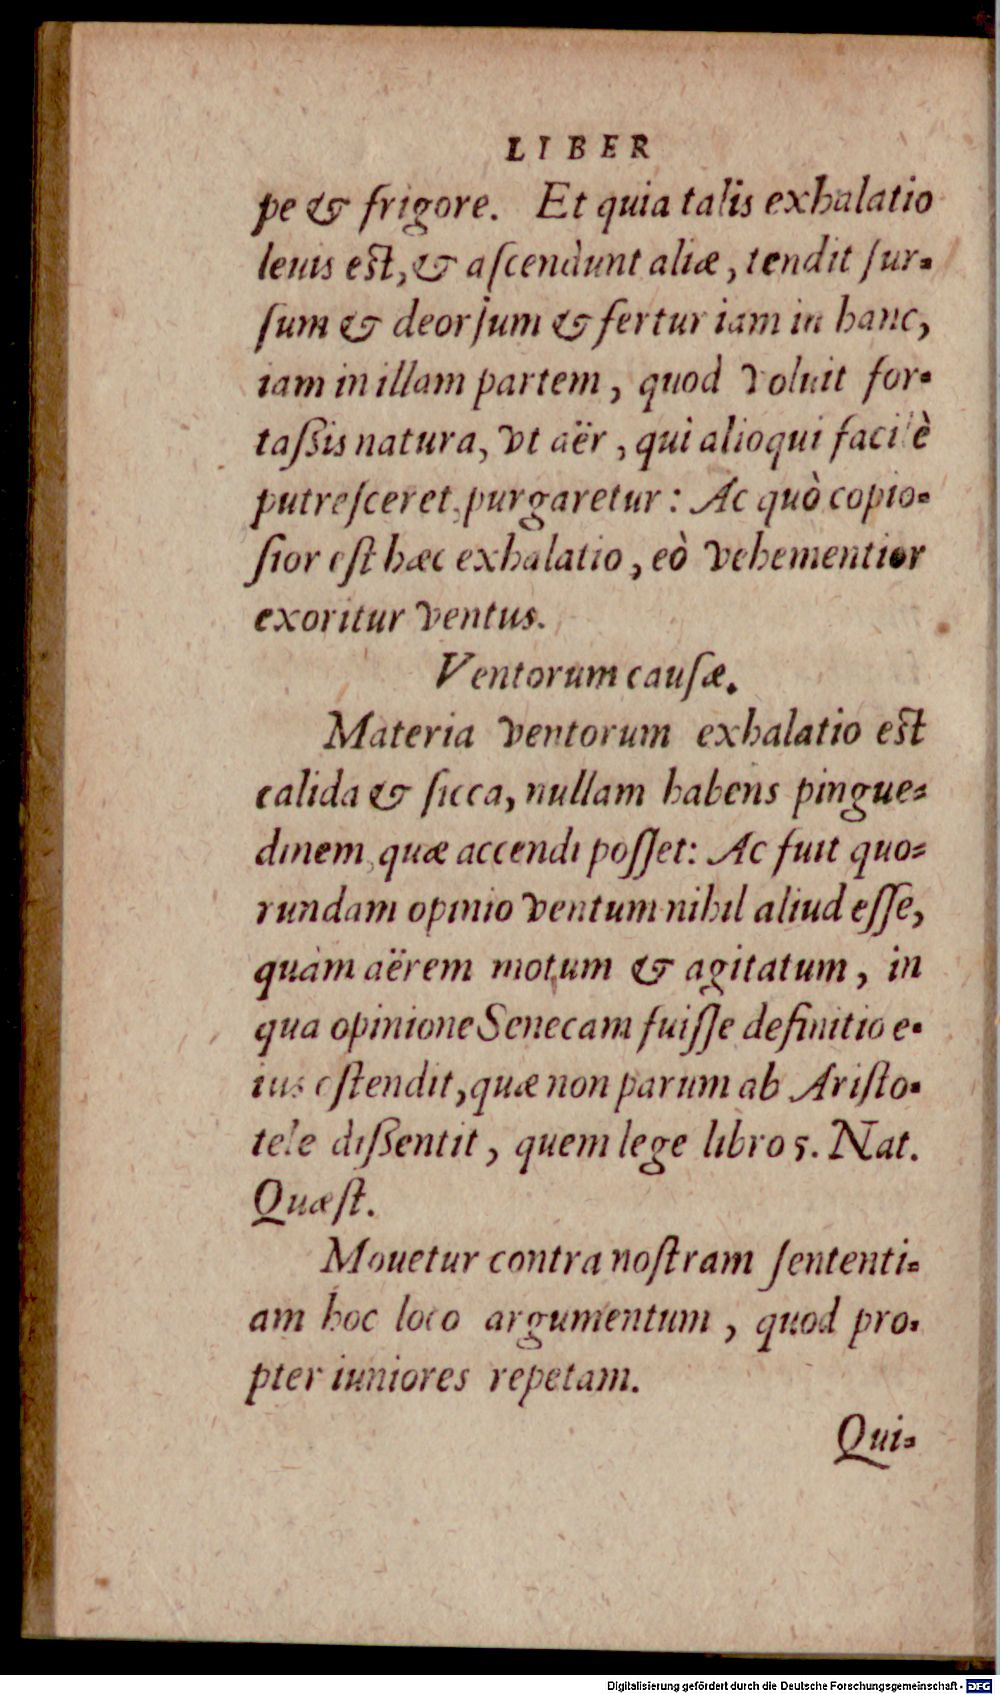 LIBER
pe & frigore. Et quia talis exhalatio
leuis est, & ascendunt aliæ, tendit sur-
sum & deorsum & fertur iam in hanc,
iam in illam partem, quod voluit for-
taßis natura, vt aër, qui alioqui facilè
putresceret, purgaretur: Ac quò copio-
sior est hæc exhalatio, eò vehementior
exoritur ventus.
Ventorum causæ.
Materia ventorum exhalatio est
calida & sicca, nullam habens pingue-
dinem, quæ accendi posset: Ac fuit quo-
rundam opinio ventum nihil aliud esse,
quàm aërem motum & agitatum, in
qua opinione Senecam fuisse definitio e-
ius ostendit, quæ non parum ab Aristo-
tele dißentit, quem lege libro 5. Nat.
Quæst.
Mouetur contra nostram sententi-
am hoc loco argumentum, quod pro-
pter iuniores repetam.
Qui-
Digitalisierung gefördert durch die Deutsche Forschungsgemeinschaft - DFG